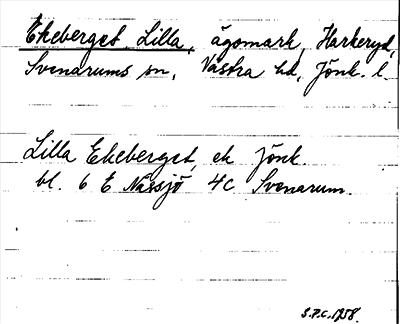 Ekeberget, Lilla, ägomark, Harkeryd,
Svenarums sn, Västra hd, Jönk. l.
Lilla Ekeberget, ek Jönk
bl. 6 E Nässjö 4c Svenarum.
S.P.C. 1958.